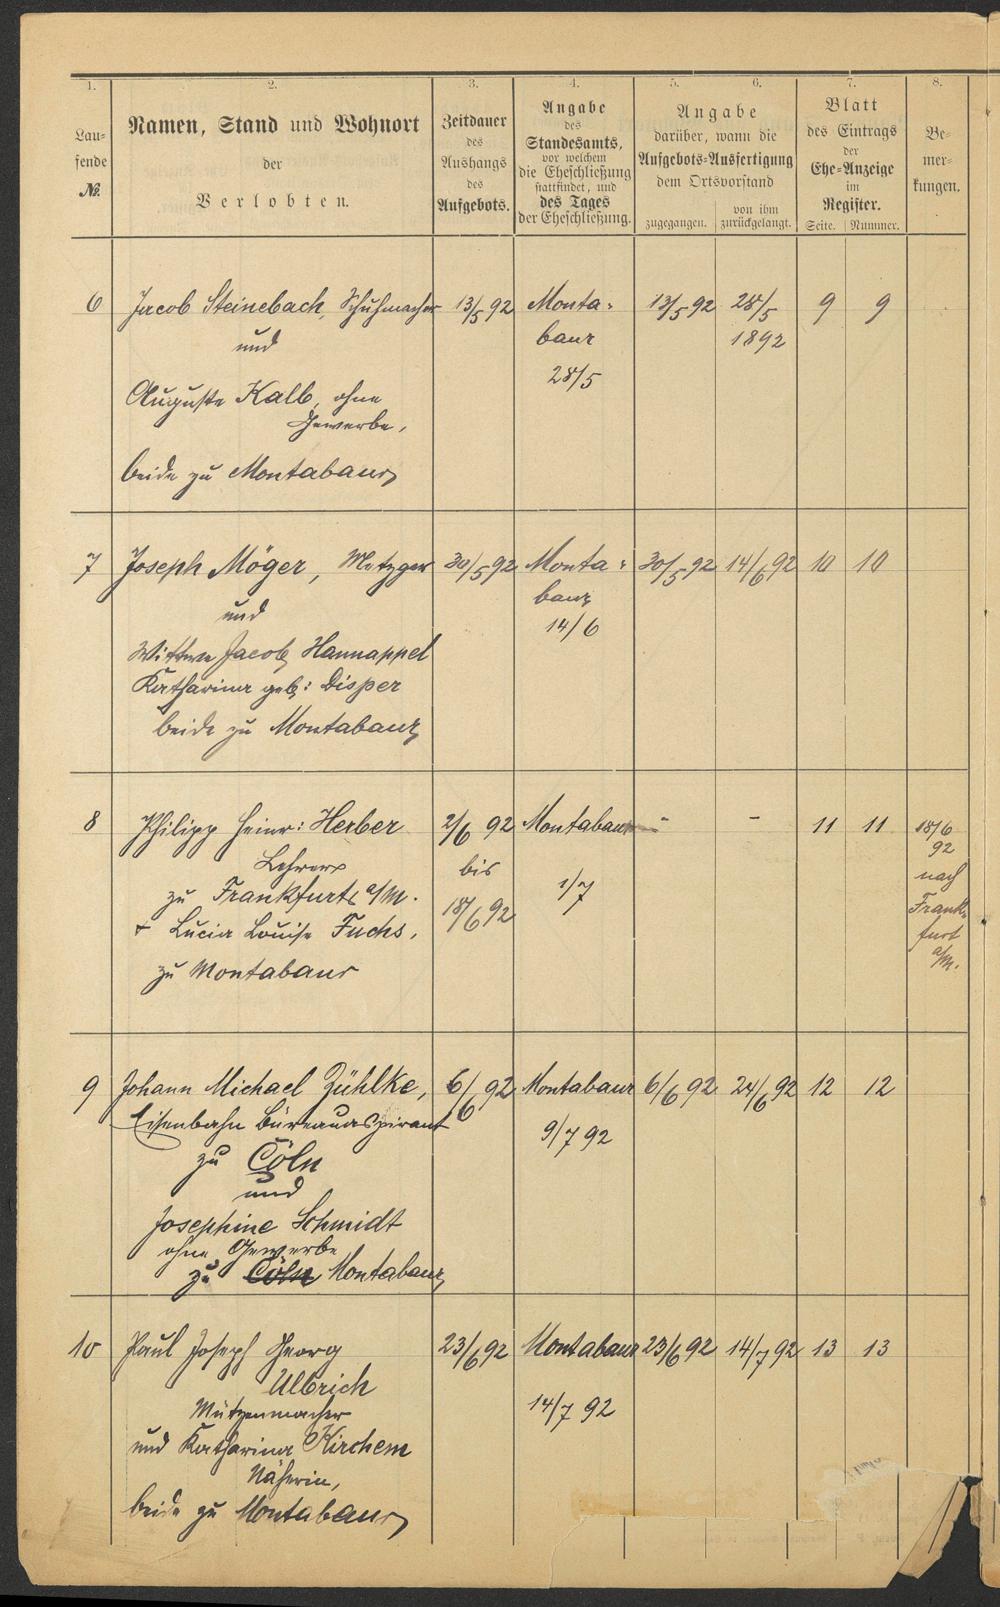 1.
2.
3.
4.
5.
6.
7.
8.
Lau-
fende
№.
Namen, Stand und Wohnort
der
Verlobten.
Zeitdauer
des
Aushangs
des
Aufgebots.
Angabe
des
Standesamts,
vor welchem
die Eheschließung
stattfindet, und
des Tages
der Eheschließung.
Angabe
darüber, wann die
Aufgebots-Ausfertigung
dem Ortsvorstand
zugegangen.
von ihm
zurückgelangt.
Blatt
des Eintrags
der
Ehe-Anzeige
im
Register.
Seite. Nummer.
Be-
mer-
kungen.
6 Jacob Steinebach, Schuhmacher 13/5 92 Monta- 13/5 92 28/5 9 9
und baur 1892
28/5
Auguste Kalb, ohne
Gewerbe,
beide zu Montabaur
7 Joseph Möger, Metzger 30/5 92 Monta- 30/5 92 14/6 92 10 10
und baur
14/6
Wittwe Jacob Hannappel
Katharina geb: Disper
beide zu Montabaur
8 Philipp Heinr: Herber 2/6 92 Montabaur - - 11 11 18/6
92
Lehrer bis nach
zu Frankfurt a/M. 1/7 Frank-
18/6 92
+ Lucia Louise Fuchs, furt
a/M.
zu Montabaur
9 Johann Michael Zühlke, 6/6 92 Montabaur 6/6 92 24/6 92 12 12
Eisenbahn Büreauaspirant
9/7 92
zu Cöln
und
Josephine Schmidt
ohne Gewerbe
zu Cöln Montabaur
10 Paul Joseph Georg 23/6 92 Montabaur 23/6 92 14/7 92 13 13
Ulbrich
Mützenmacher 14/7 92
und Katharina Kirchem
Näherin,
beide zu Montabaur